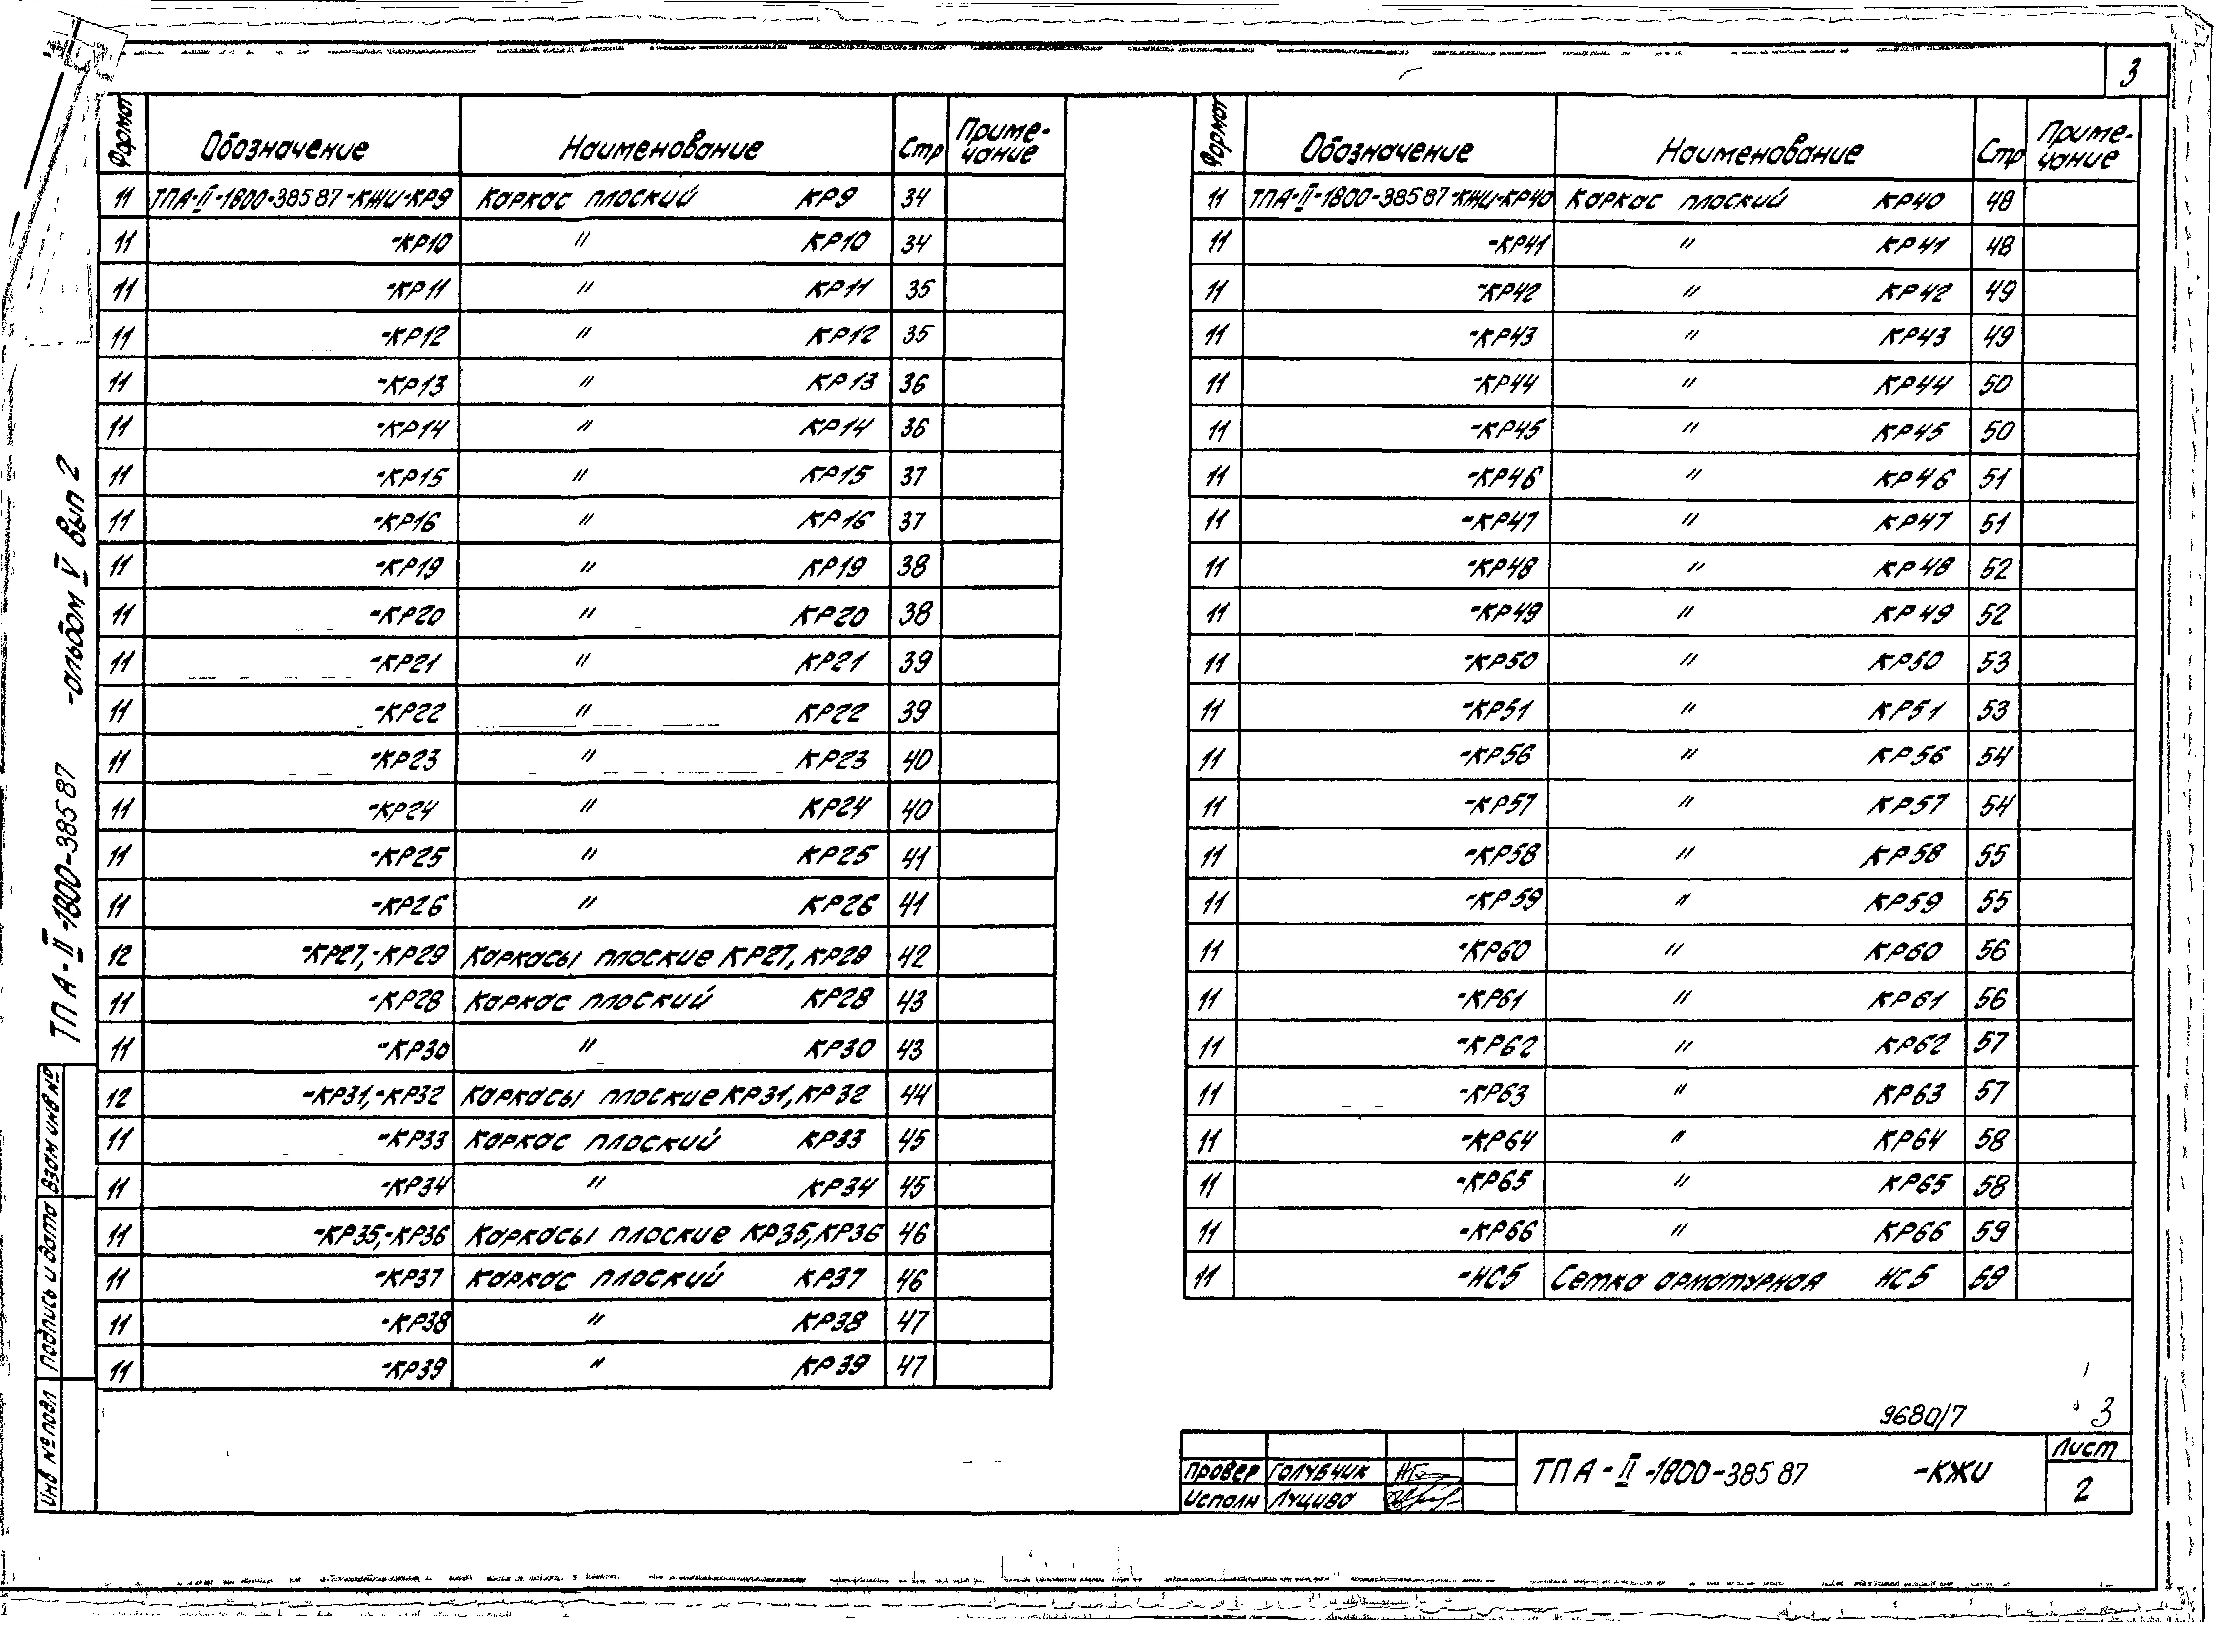 3
Формат Обозначение Наименование Стр Приме-чание
11 ТПА-II-1800-385 87-КЖИ-КР9 Каркас плоский КР9 34
11 -КР10 " КР10 34
11 -КР11 " КР11 35
11 -КР12 " КР12 35
11 -КР13 " КР13 36
11 -КР14 " КР14 36
11 -КР15 " КР15 37
11 -КР16 " КР16 37
11 -КР19 " КР19 38
11 -КР20 " КР20 38
11 -КР21 " КР21 39
11 -КР22 " КР22 39
11 -КР23 " КР23 40
11 -КР24 " КР24 40
11 -КР25 " КР25 41
11 -КР26 " КР26 41
12 -КР27,-КР29 Каркасы плоские КР27, КР29 42
11 -КР28 Каркас плоский КР28 43
11 -КР30 " КР30 43
12 -КР31,-КР32 Каркасы плоские КР31, КР32 44
11 -КР33 Каркас плоский КР33 45
11 -КР34 " КР34 45
11 -КР35,-КР36 Каркасы плоские КР35, КР36 46
11 -КР37 Каркас плоский КР37 46
11 -КР38 " КР38 47
11 -КР39 " КР39 47
Формат Обозначение Наименование Стр Приме-чание
11 ТПА-II-1800-385 87-КЖИ-КР40 Каркас плоский КР40 48
11 -КР41 " КР41 48
11 -КР42 " КР42 49
11 -КР43 " КР43 49
11 -КР44 " КР44 50
11 -КР45 " КР45 50
11 -КР46 " КР46 51
11 -КР47 " КР47 51
11 -КР48 " КР48 52
11 -КР49 " КР49 52
11 -КР50 " КР50 53
11 -КР51 " КР51 53
11 -КР56 " КР56 54
11 -КР57 " КР57 54
11 -КР58 " КР58 55
11 -КР59 " КР59 55
11 -КР60 " КР60 56
11 -КР61 " КР61 56
11 -КР62 " КР62 57
11 -КР63 " КР63 57
11 -КР64 " КР64 58
11 -КР65 " КР65 58
11 -КР66 " КР66 59
11 -НС5 Сетка арматурная НС5 59
ТПА-II-1800-385 87 -альбом V вып 2
Взам инв №
Подпись и дата
Инв № подл
9680/7 3
Провер Голубчик
Исполн Лущиво
ТПА-II-1800-385 87 -КЖИ
Лист
2